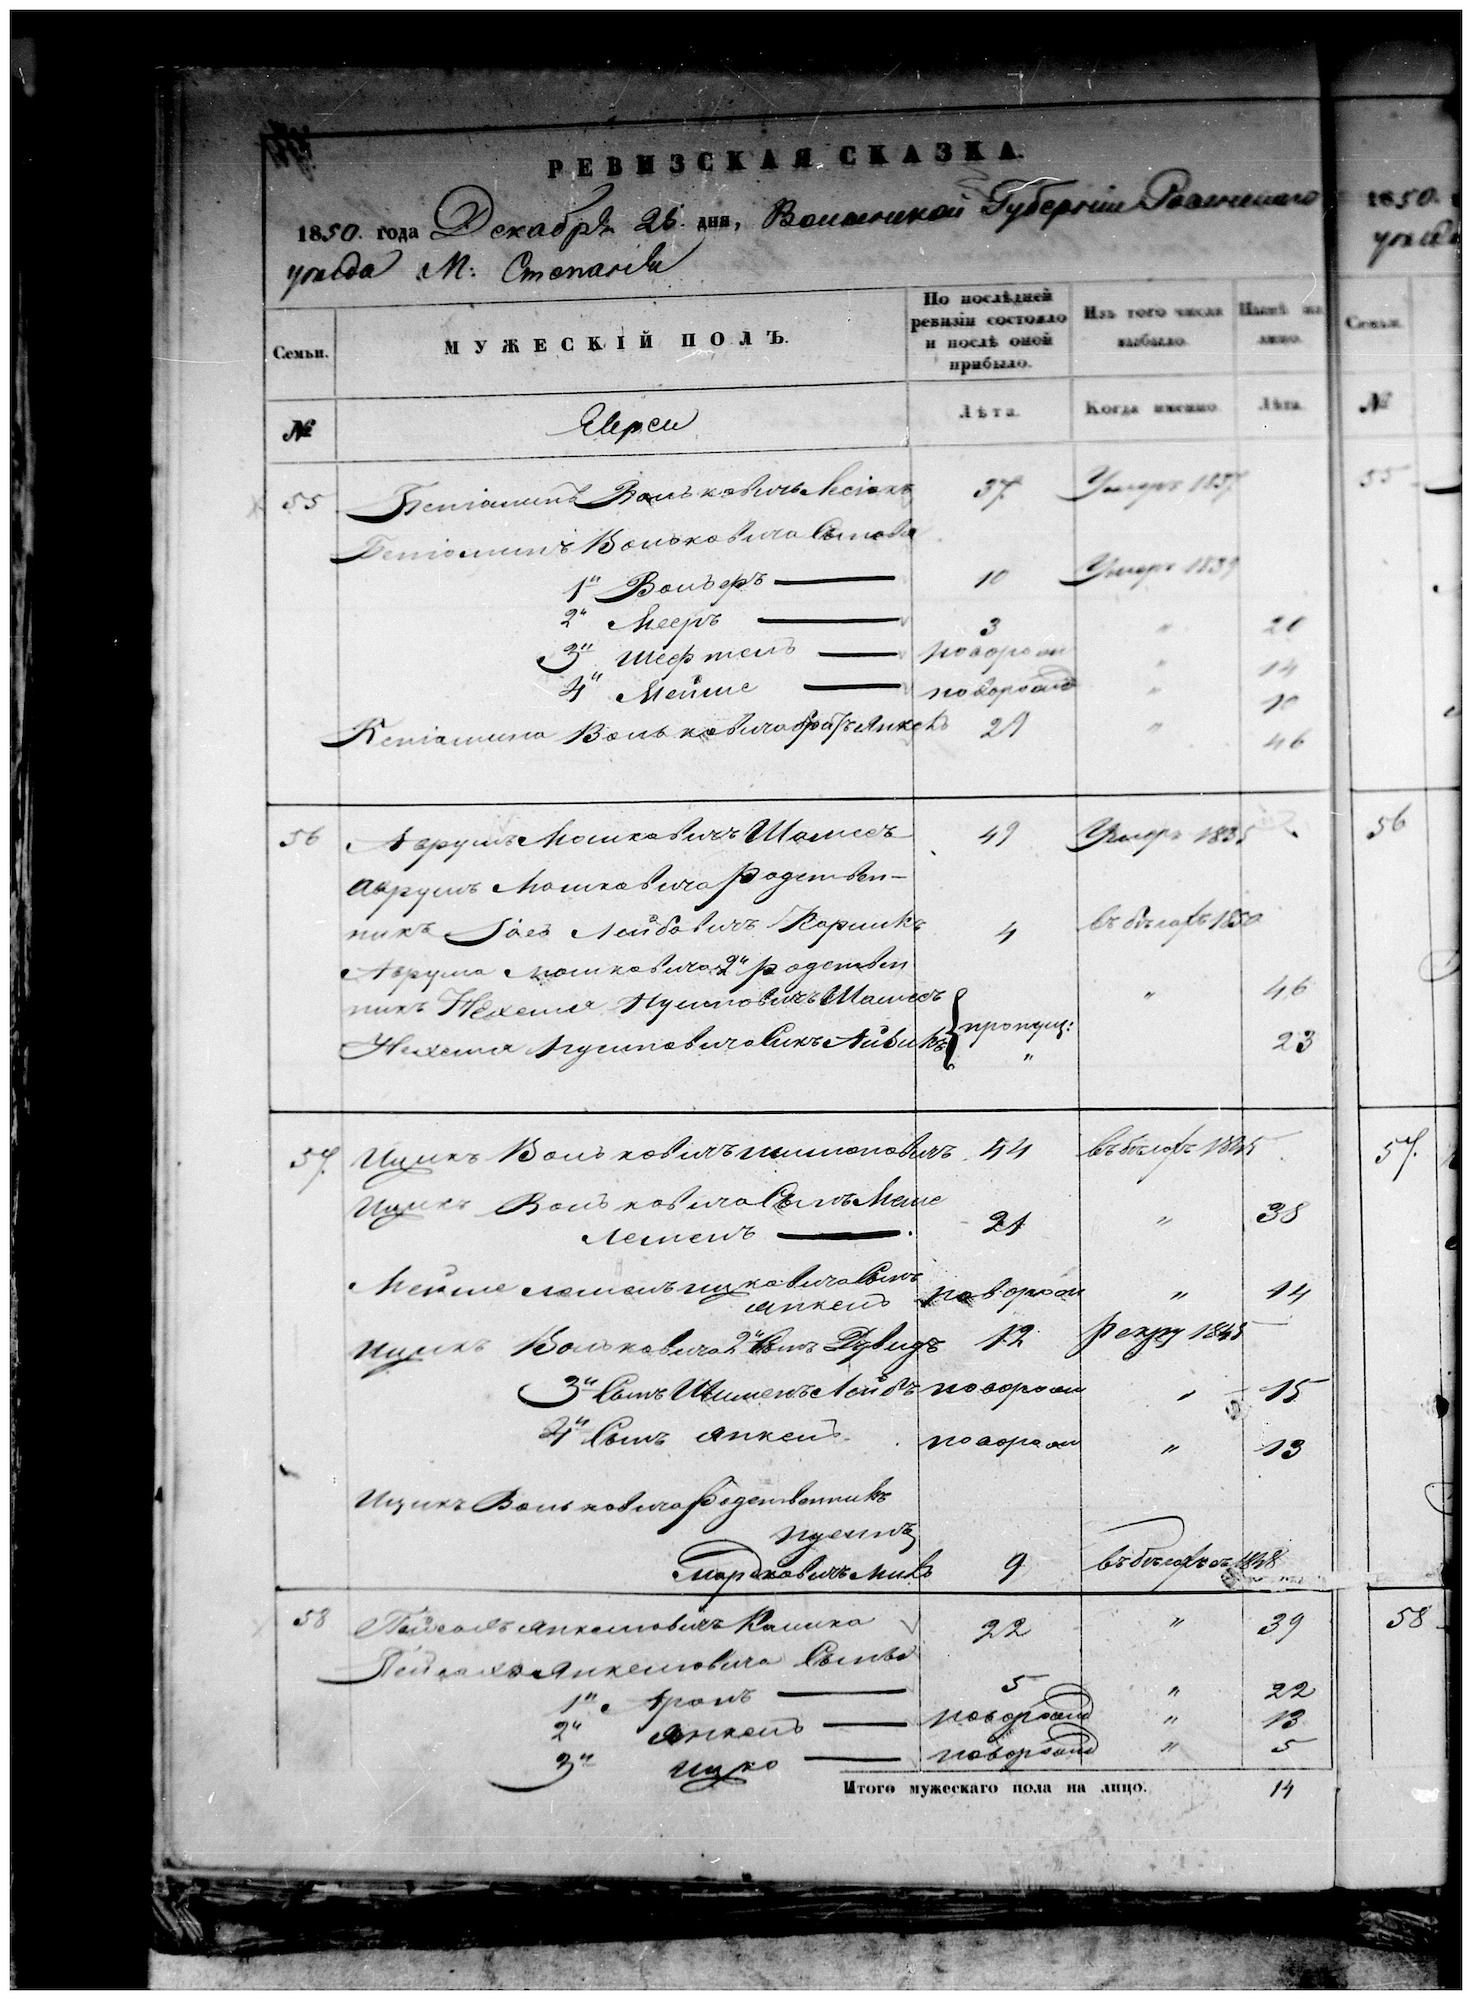 РЕВИЗСКАЯ СКАЗКА.
1850. года Декабря 26. дня, Волынской Губерніи Ровенского
уезда М: Степаня
Семьи.
МУЖЕСКІЙ ПОЛЪ.
По послѣдней ревизіи состояло и послѣ оной прибыло.
Изъ того числа выбыло.
Нынѣ на лицо.
№
Евреи
Лѣта.
Когда именно.
Лѣта.
55 Беніаминъ Вольковичъ 37 Умеръ 1837
Беніоминъ Вольковича Сыновя
1й Вольфъ 10 Умеръ 1839
2й Мееръ 3 " 20
3й Шефтель новорожд " 14
4й Мейше новорожд " 10
Беніамина Вольковича братъ Янкель 29 " 46
56 Аврумъ Мошковичъ Шамес 49 Умеръ 1835
Аврумъ Мошковича Родствен-
никъ Лейбовичъ 4 въ бегахъ 1850
Аврума Мошковича 2й родствен
никъ Нехемія Шамесъ пропущ: " 46
Нехемія Сынъ Айзикъ " 23
57. Ицикъ Вольковичъ 44 въ бегахъ 1845
Ицикъ Вольковича Сынъ Меше
Лемель 21 " 38
Мейше Лемель Ицковича Сынъ
Янкель новорожд " 14
Ицикъ Вольковича 2й Сынъ Дувидъ 12 рекру 1845
3й Сынъ Шименъ Лейбъ новорожд " 15
4й Сынъ Янкель новорожд " 13
Ицикъ Вольковича Родственникъ
Мордковичъ 9 въ бегахъ съ 1848
58 Пейсахъ Янкелювичъ 22 " 39
Пейсахъ Янкелювича Сыновя
1й Аронъ 5 " 22
2й Янкель новорожд " 13
3й Ицко новорожд " 5
Итого мужескаго пола на лицо. 14
1850.
Семьи.
№
55
56
57.
58